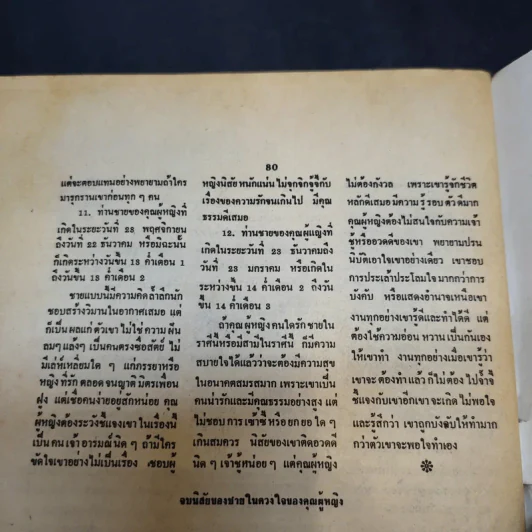 80
แต่จะตอบแทนอย่างพยายามถ้าใคร
มารุกรานเขาก่อนทุก ๆ คน
11. ท่านชายของคุณผู้หญิงที่
เกิดในระยะวันที่ 23 พฤศจิกายน
ถึงวันที่ 22 ธันวาคม หรือมิฉะนั้น
ก็เกิดระหว่างวันขึ้น 13 ค่ำเดือน 1
ถึงวันขึ้น 13 ค่ำเดือน 2
ชายแบบนี้มีความคิดล้ำลึกนัก
ชอบสร้างวิมานในอากาศเสมอ แต่
ก็เป็นผลแก่ตัวเขา ไม่ใช่ความฝัน
ลมๆแล้งๆ เป็นคนตรงซื่อสัตย์ ไม่
มีเล่ห์เหลี่ยมใด ๆ แก่ภรรยาหรือ
หญิงที่รัก ตลอดจนญาติมิตรเพื่อน
ฝูง แต่เชื่อคนง่ายอยู่สักหน่อย คุณ
ผู้หญิงต้องระวังชี้แจงเขาในเรื่องนี้
เป็นคนเจ้าอารมณ์นิด ๆ ถ้ามีใคร
ขัดใจเขาอย่างไม่เป็นเรื่อง ชอบผู้
หญิงนิสัยหนักแน่นไม่จุกจิกจู้จี้กับ
เรื่องของความรักจนเกินไป มีคุณ
ธรรมดีเสมอ
12. ท่านชายของคุณผู้หญิงที่
เกิดในระยะวันที่ 23 ธันวาคมถึง
วันที่ 23 มกราคม หรือเกิดใน
ระหว่างขึ้น 14 ค่ำเดือน 2 ถึงวัน
ขึ้น 14 ค่ำเดือน 3
ถ้าคุณผู้หญิงคนใดรักชายใน
ราศีนี้หรือมีสามีในราศีนี้ ก็มีความ
สบายใจได้แล้วว่าจะต้องมีความสุข
ในอนาคตสมรสมาก เพราะเขาเป็น
คนน่ารักและมีคุณธรรมอย่างสูง แต่
ไม่ชอบการเซ้าซี้หรือยกยอใด ๆ
เกินสมควร นิสัยของเขาติดอวดดี
นิด ๆ เจ้าชู้หน่อย ๆ แต่คุณผู้หญิง
ไม่ต้องกังวล เพราะเขารู้จักชีวิต
หลักดีเสมอ มีความรู้รอบตัวดีมาก
คุณผู้หญิงต้องไม่สนใจกับความเจ้า
ชู้หรืออวดดีของเขา พยายามปรน
นิบัติเอาใจเขาอย่างเดียว เขาชอบ
การประเล้าประโลมใจ มากกว่าการ
บังคับ หรือแสดงอำนาจเหนือเขา
งานทุกอย่างเขารู้ดีและทำได้ดี แต่
ต้องใช้ความอ่อนหวานเป็นกันเอง
ให้เขาทำ งานทุกอย่างเมื่อเขารู้ว่า
เขาจะต้องทำแล้วก็ไม่ต้องไปจ้ำจี้
ชี้แจงกับเขาอีกเขาจะเกิดไม่พอใจ
และรู้สึกว่า เขาถูกบังคับให้ทำมาก
กว่าตัวเขาจะพอใจทำเอง
จบนิสัยของชายในดวงใจของคุณผู้หญิง